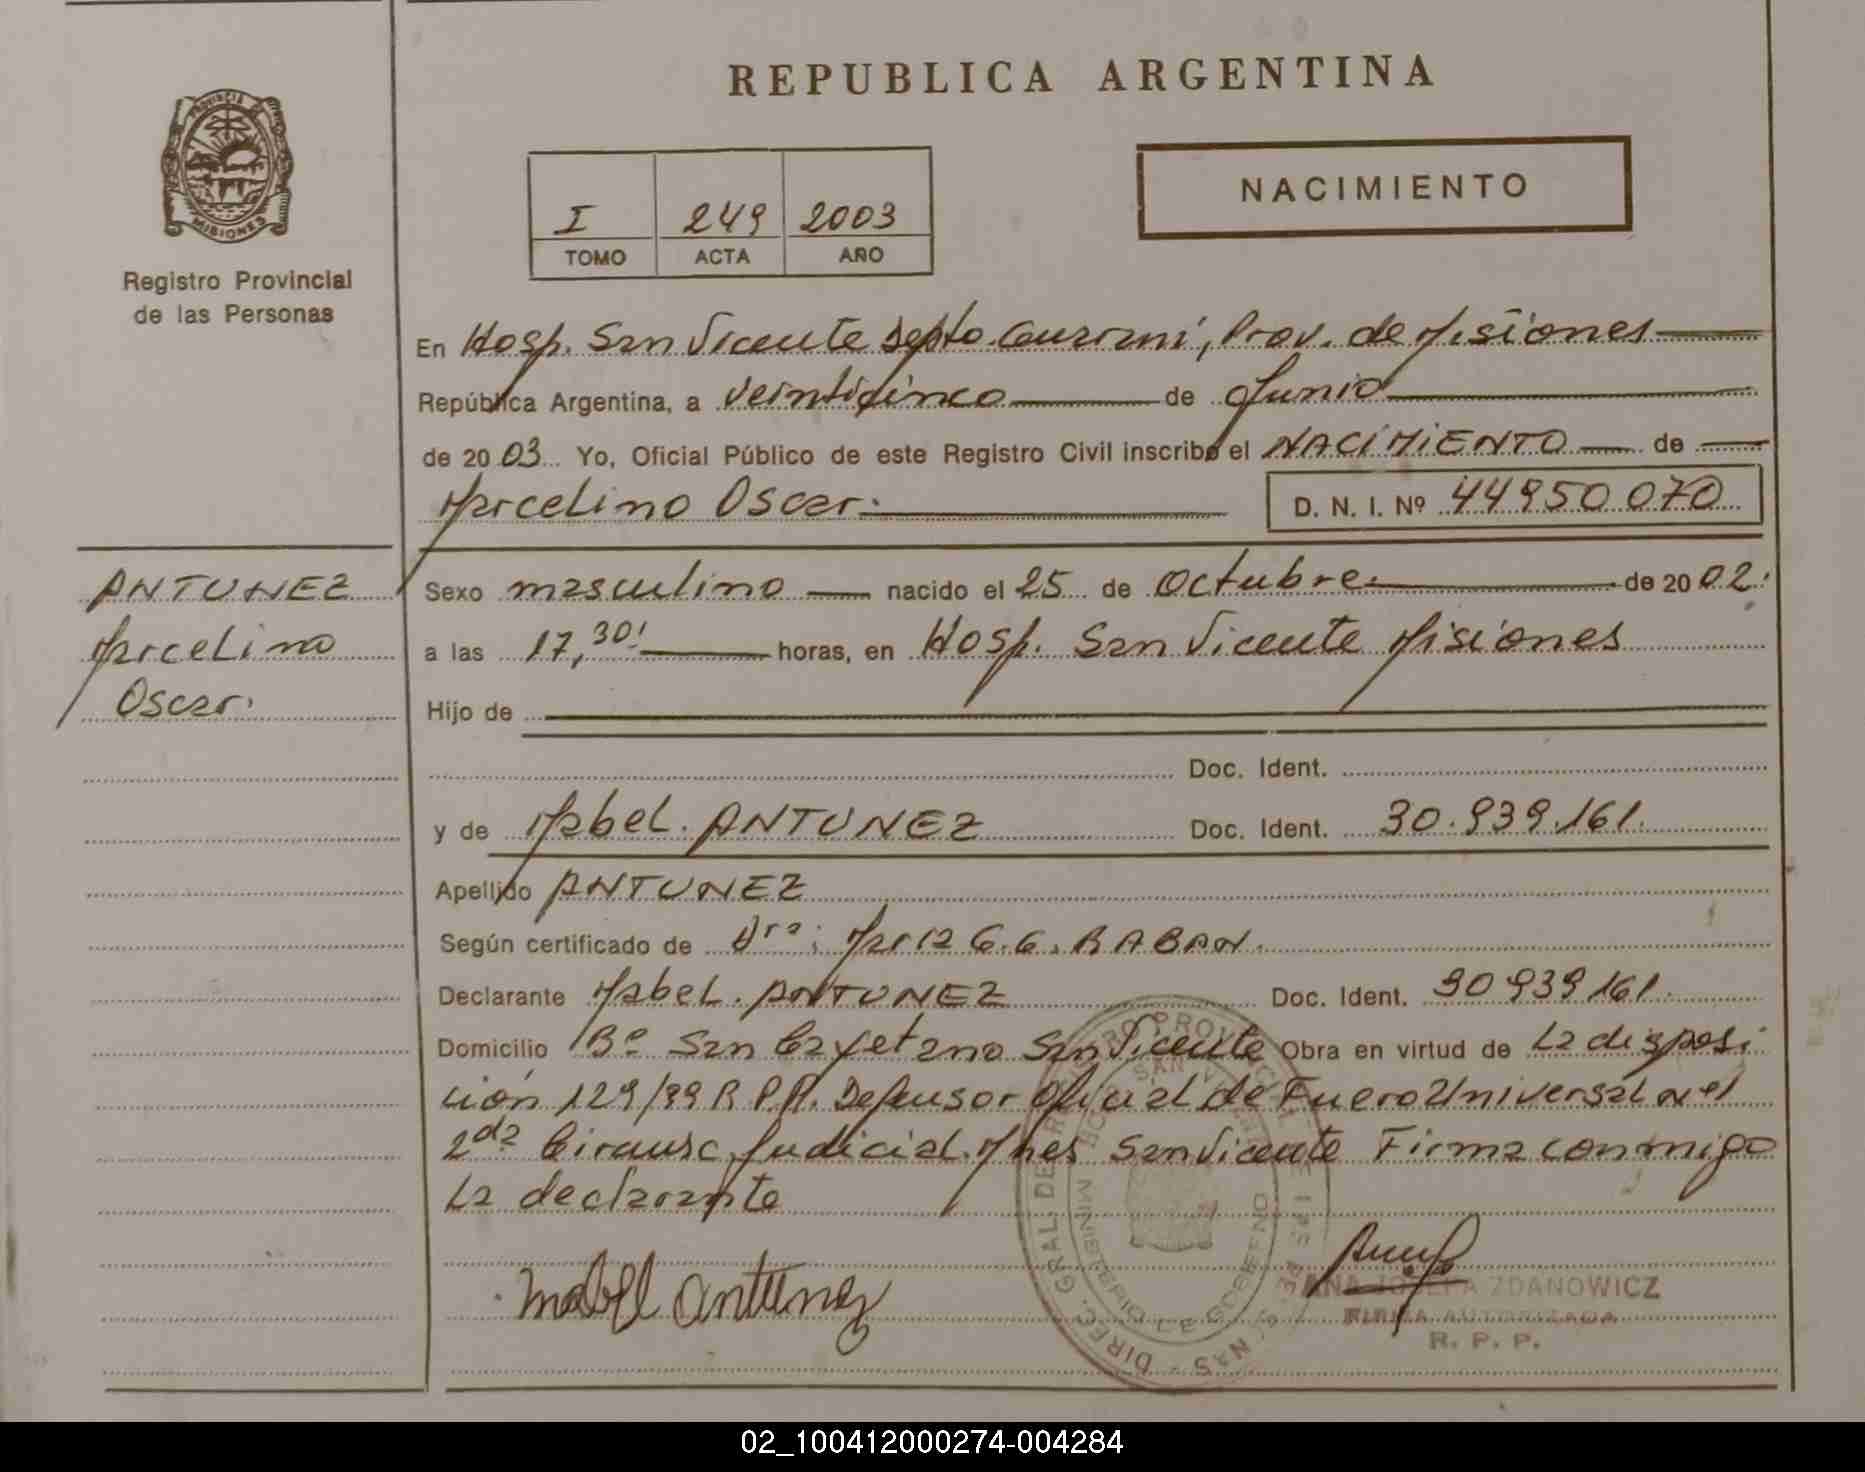 REPUBLICA ARGENTINA
PROVINCIA DE MISIONES
Registro Provincial
de las Personas
I 249 2003
TOMO ACTA AÑO
NACIMIENTO
En Hosp. San Vicente Depto. Guarani, Prov. de Misiones
República Argentina, a veinticinco de Junio
de 2003 Yo, Oficial Público de este Registro Civil inscribo el NACIMIENTO de
Marcelino Oscar.
D. N. I. Nº 44950070
ANTUNEZ
Marcelino
Oscar.
Sexo masculino nacido el 25 de Octubre de 2002.
a las 17,30' horas, en Hosp. San Vicente Misiones
Hijo de
Doc. Ident.
y de Mabel. ANTUNEZ Doc. Ident. 30.939.161.
Apellido ANTUNEZ
Según certificado de Dra: Maria G.G. RABAN.
Declarante Mabel. ANTUNEZ Doc. Ident. 30939161.
Domicilio Bº San Cayetano San Vicente Obra en virtud de La disposi
ción 129/99 R.P.P. Defensor Oficial de Fuero Universal
2da Circunsc. Judicial. Mnes San Vicente Firma conmigo
La declarante
Mabel Antunez
ANA JOSEFA ZDANOWICZ
FIRMA AUTORIZADA
R. P. P.
02_100412000274-004284